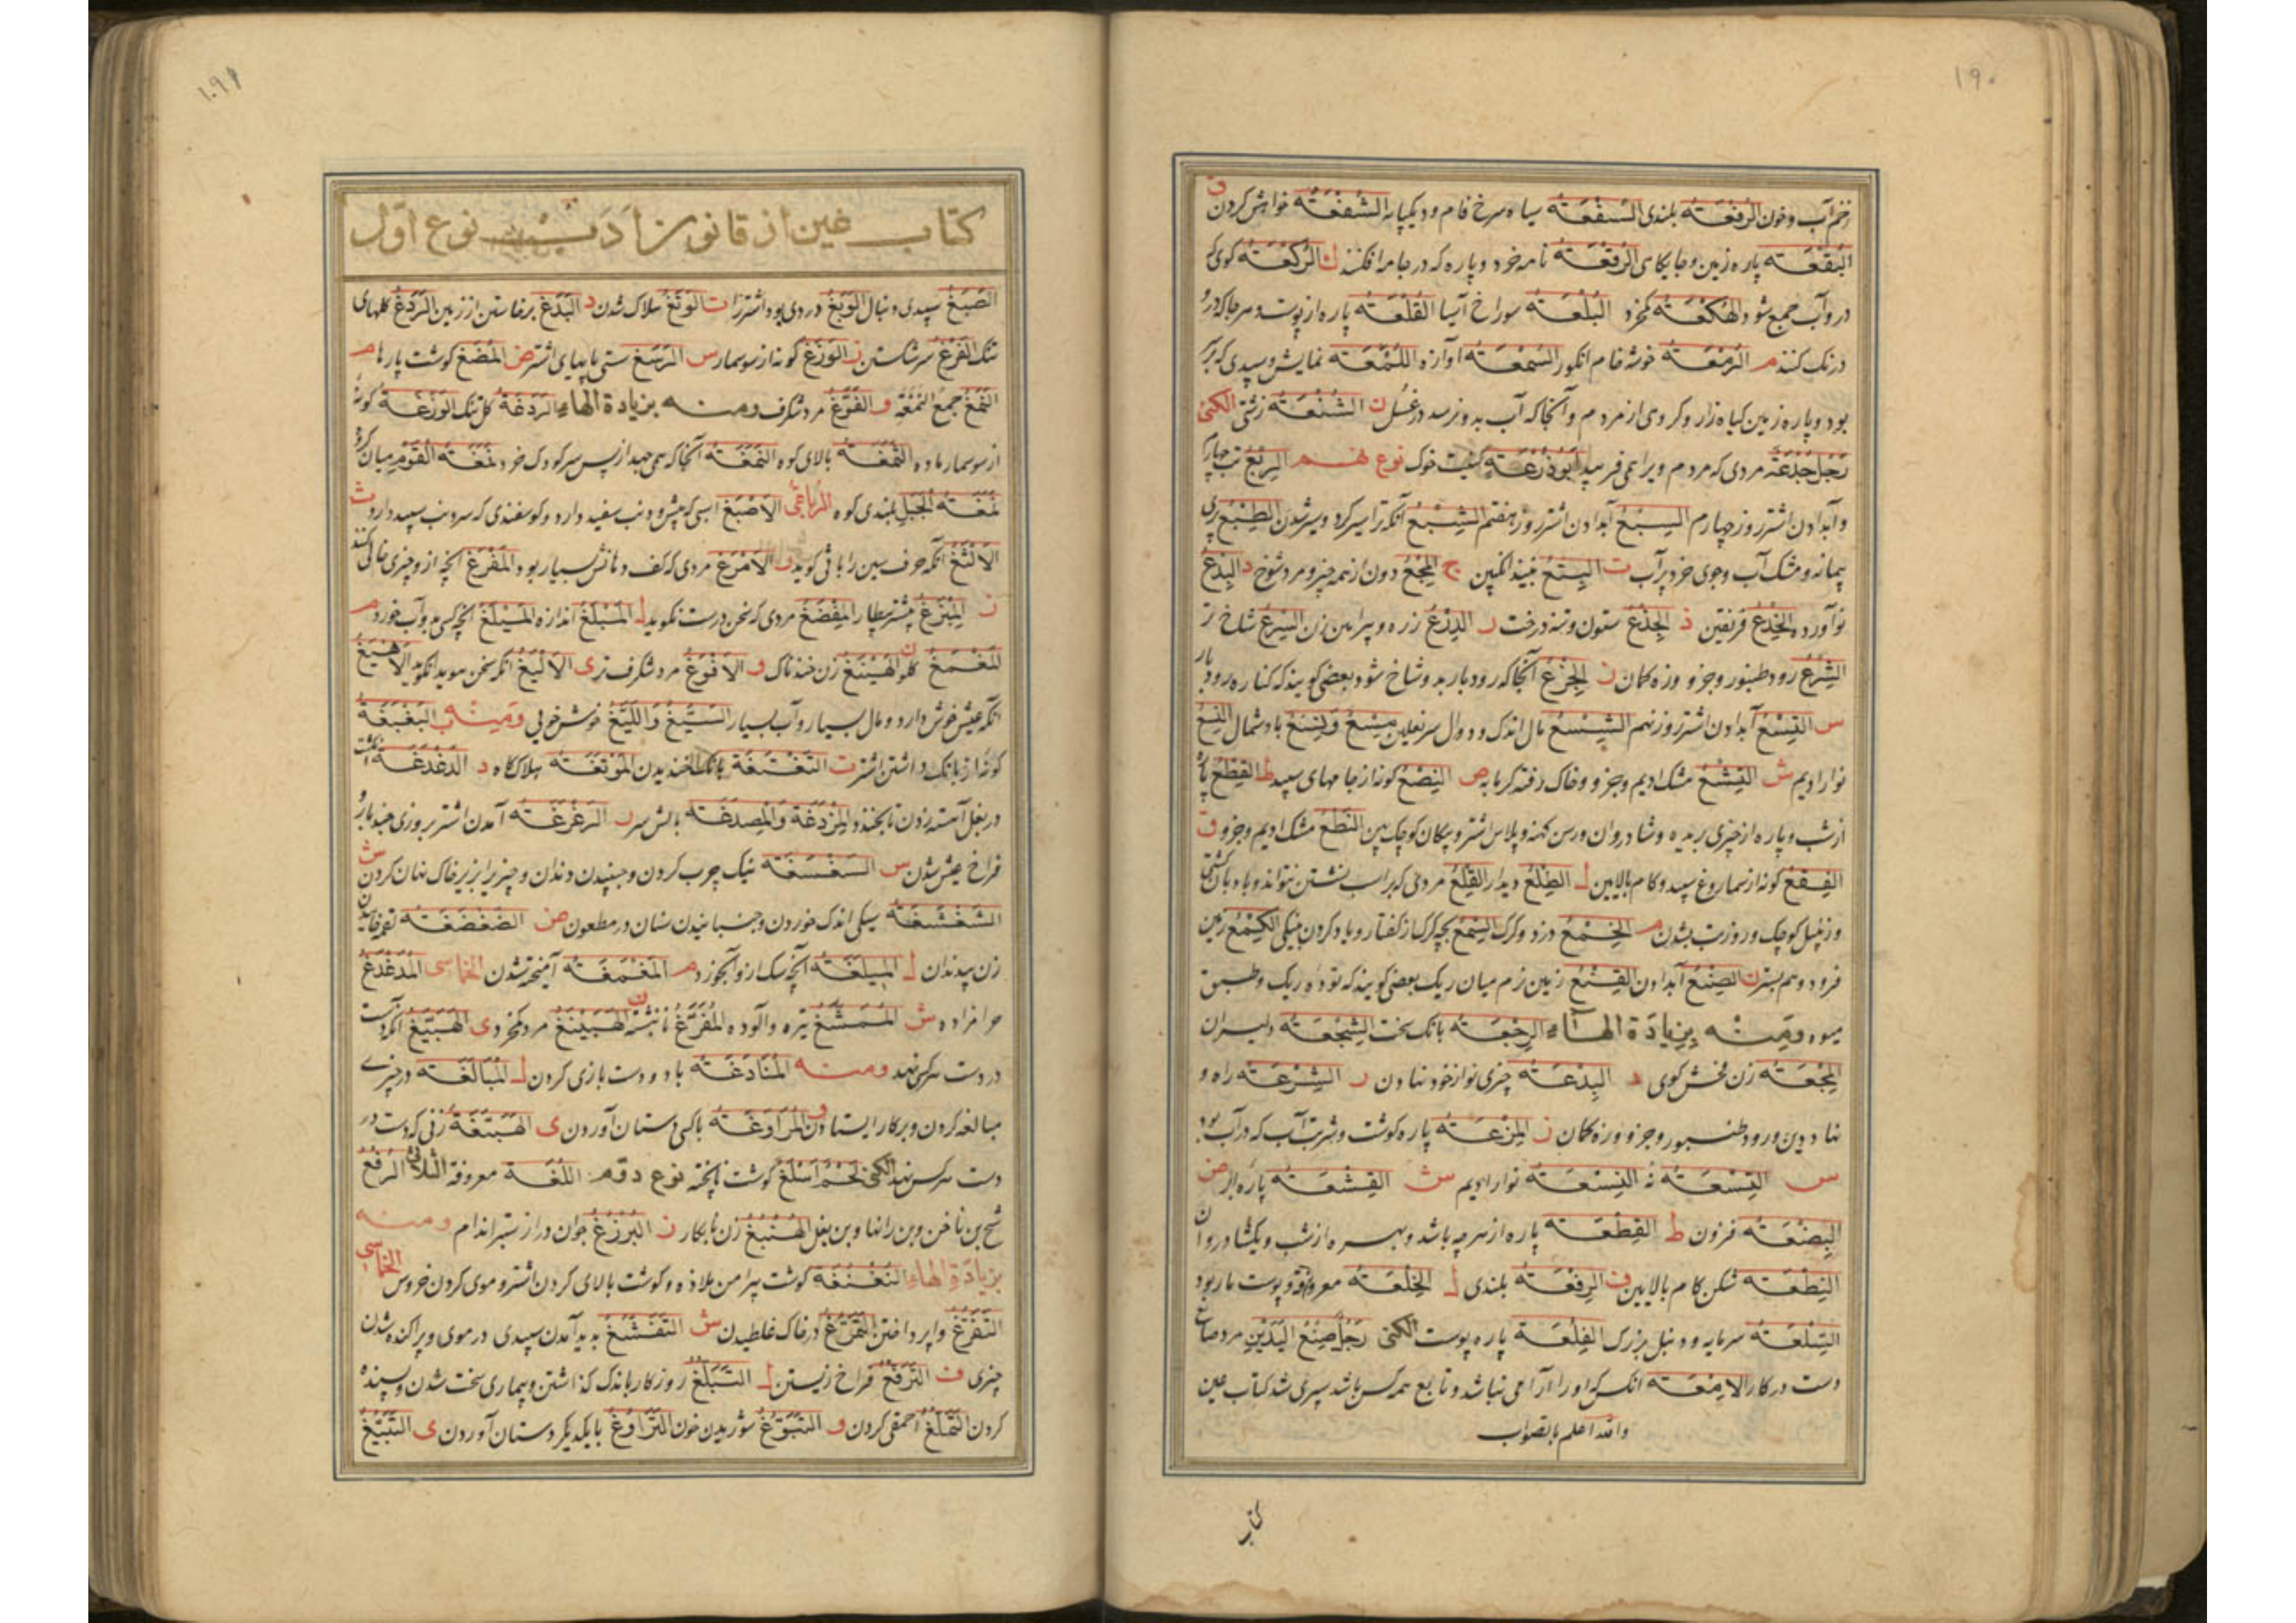 ۱۹۰
زخم آب و خون الرفعَتہ بلندی السفعَتہ سیاه سرخ فام و دیکپایه الشفعَتہ خواهش کردن ق
البقعَتہ پاره زمین و جایکاهی الرقعَتہ نامه خرد و پاره که در جامه افکنند ك الرکعَتہ کوی که
درو آب جمع شود الهکعَتہ کمخرد البلعَتہ سوراخ آسیا القلعَتہ پاره از پوست و هر جا که درو
درنک کنند م الزمعَتہ خوشه خام انکور السمعَتہ آوازه اللمعَتہ نمایش و سپیدی که بر
بود و پاره زمین کیاه زار و کروهی از مردم و آنجا که آب بدو نرسد در غسل ن الشنعَتہ زشتی الکنی
رجل خدعة مردی که مردم ویرا همی فریبد ابو زرعَتہ کنیت خوک نوع نهم الربع تب چهارم
و آبدادن اشتر روز چهارم السبع آبدادن اشتر روز هفتم الشبع آنکه ترا سیر کرد و سیر شدن الطبع ری
پیمانه و مشک آب و جوی خرد پر آب ت البتع نبیذ انکبین ج المجع دون از همه چیز و مرد شوخ د البدع
نو آورده الخدع فریفتن ذ الجذع ستون و تنه درخت ر الدرع زره و پیراهن زن السرع شاخ تر
الشرع رود طنبور و جز و زه کمان ز الجزع آنجا که رودبار بدو شاخ شود و بعضی کویند که کناره رودبار
س التسع آبدادن اشتر روز نهم الشسع مال اندک و دوال سر نعلین مسع و نسع باد شمال النسع
نوار ادیم ش القشع مشک ادیم و جزو و خاک رفته کرمابه ص النصع کونه از جامهای سپید ط القطع پاره
از شب و پاره از چیزی بریده و شادروان و رسن کهنه و پلاس اشتر و پیکان کوچک پهن النطع مشک ادیم و جزو ق
الفقع کونه از سماروغ سپید و کام بالایین ل الطلع دیدار القلع مردی که بر اسب نشستن نتواند و بادبان کشتی
و زنبیل کوچک و روز تب شدن م الخمع دزد و کرک السمع بچه کرک از کفتار و یاد کردن بنیکی الکمع زمین
فرود و هم بستر ن الصنع آبدادن القنع زمین نرم میان ریک بعضی کویند که توده ریک و طبق
میوه ومنه بزیادة الهاء الرجعَتہ بانک سخت الشجعَتہ دلیران
المجعَتہ زن فحش کوی د البدعَتہ چیزی نو از خود نهادن ر الشرعَتہ راه و
نهاد دین و رود طنبور و جزو و زه کمان ز المزعَتہ پاره کوشت و شربت آب که در آب بود
س التسعَتہ نه النسعَتہ نوار ادیم ش القشعَتہ پاره ابر ض
البضعَتہ فزون ط القطعَتہ پاره از هر چه باشد و بهره از شب و یکشادروان
النطعَتہ شکن کام بالایین ف الرفعَتہ بلندی ل الخلعَتہ معروفة و پوست مار بود
السلعَتہ سرمایه و دنبل بزرک الفلعَتہ پاره پوست الکنی رجل صنع الیدین مرد صانع
دست در کار الامعَتہ انکس که او را آرامی نباشد و تابع همه کس باشد سپری شد کتاب عین
والله اعلم بالصواب
کتاب
۱۹۱
کتاب غین از قانون ادب نوع اول
الصبغ سپیدی دنبال الوبغ دردی بود اشترنرا ت الوتغ هلاک شدن د البدغ برخاستن از زمین الردغ کلهای
تنک الفرغ سر شکستن ز الوزغ کونه از سوسمار س الرسغ سستی پایهای اشتر ض المضغ کوشت پارها م
النمغ جمع النمغه و الفوغ مرد شکرف ومنه بزیادة الهاء الردغة کل تنک الوزغَتہ کونه
از سوسمار ماده الثمغَتہ بالای کوه النمغَتہ آنجا که همی جهد از پس سر کودک خرد نمغَتہ القوم میان کروه
نمغَتہ الجبل بلندی کوه الرباعی الاصبغ اسبی که پیش و دنب سفید دارد و کوسفندی که سر دنب سپید دارد ث
الالثغ آنکه حرف سین را با ثی کوید ر الامرغ مردی که کف دهانش بسیار بود المفرغ آنچه ازو چیزی خالی کنند
ز المبزغ نیشتر بیطار المفضغ مردی که سخن درست نکوید ل المبلغ اندازه المیلغ آنچه کس بدو آب خورد م
المغمغ کلو ن الهینغ زن خندناک و الافوغ مرد شکرف تر ی الالیغ انکه سخن هویدا نکوید الاهیغ
انکه عیش خوش دارد و مال بسیار و آب بسیار السیغ واللیغ خوش خوئی ومنه ب البغبغَتہ
کونه از بانک داشتن اشتر ت التغتغَة بانک خندیدن الموتغَتہ هلاک کاه د الدغدغَتہ انکشت
در بغل آهسته زدن تا بخندد المزدغة والمصدغَتہ بالش سر ر الرغرغَتہ آمدن اشتر بروزی چند بار و
فراخ عیش شدن س السغسغَتہ نیک چرب کردن و جنبیدن دندان و چیزی را بزیر خاک نهان کردن ش
الشغشغَتہ سیکی اندک خوردن و جنبانیدن سنان در مطعون ض الضغضغَتہ لقمه خاییدن
زن بیدندان ل المیلغَتہ آنچه سک ازو آبخورد م المغمغَتہ آمیخته شدن الخماسی المدغدغ
حرامزاده ش الممشغ تیره و آلوده المفرغ نانبشته ن الهبینغ مرد کمخرد ی الهبیغ انکه دست
در دست هر کس نهد ومنه المنادغَتہ با دو دست بازی کردن ل المبالغَتہ در چیزی
مبالغه کردن و بر کار ایستادن و المراوغَتہ با کسی دستان آوردن ی الهبیغَتہ زنی که دست در
دست هر کس نهد الکنی لحم اسلغ کوشت ناپخته نوع دوم اللغَتہ معروفة الثلاثی الرفغ
شخ بن ناخن و بن رانها و بن بغل الهنبغ زن نابکار ز البرزغ جوان دراز ستبر اندام ومنه
بزیادة الهاء النغنغة کوشت پیرامن ملاذه و کوشت بالای کردن اشتر و موی کردن خروس الخماسی
التفرغ واپرداختن التمرغ در خاک غلطیدن ش التفشغ پدید آمدن سپیدی در موی و پراکنده شدن
چیزی ف الترفغ فراخ زیستن ل التبلغ روزکار باندک کذاشتن و بیماری سخت شدن و بسنده
کردن التملغ احمقی کردن و التبوغ شوریدن خون التراوغ با یکدیکر دستان آوردن ی التبیغ